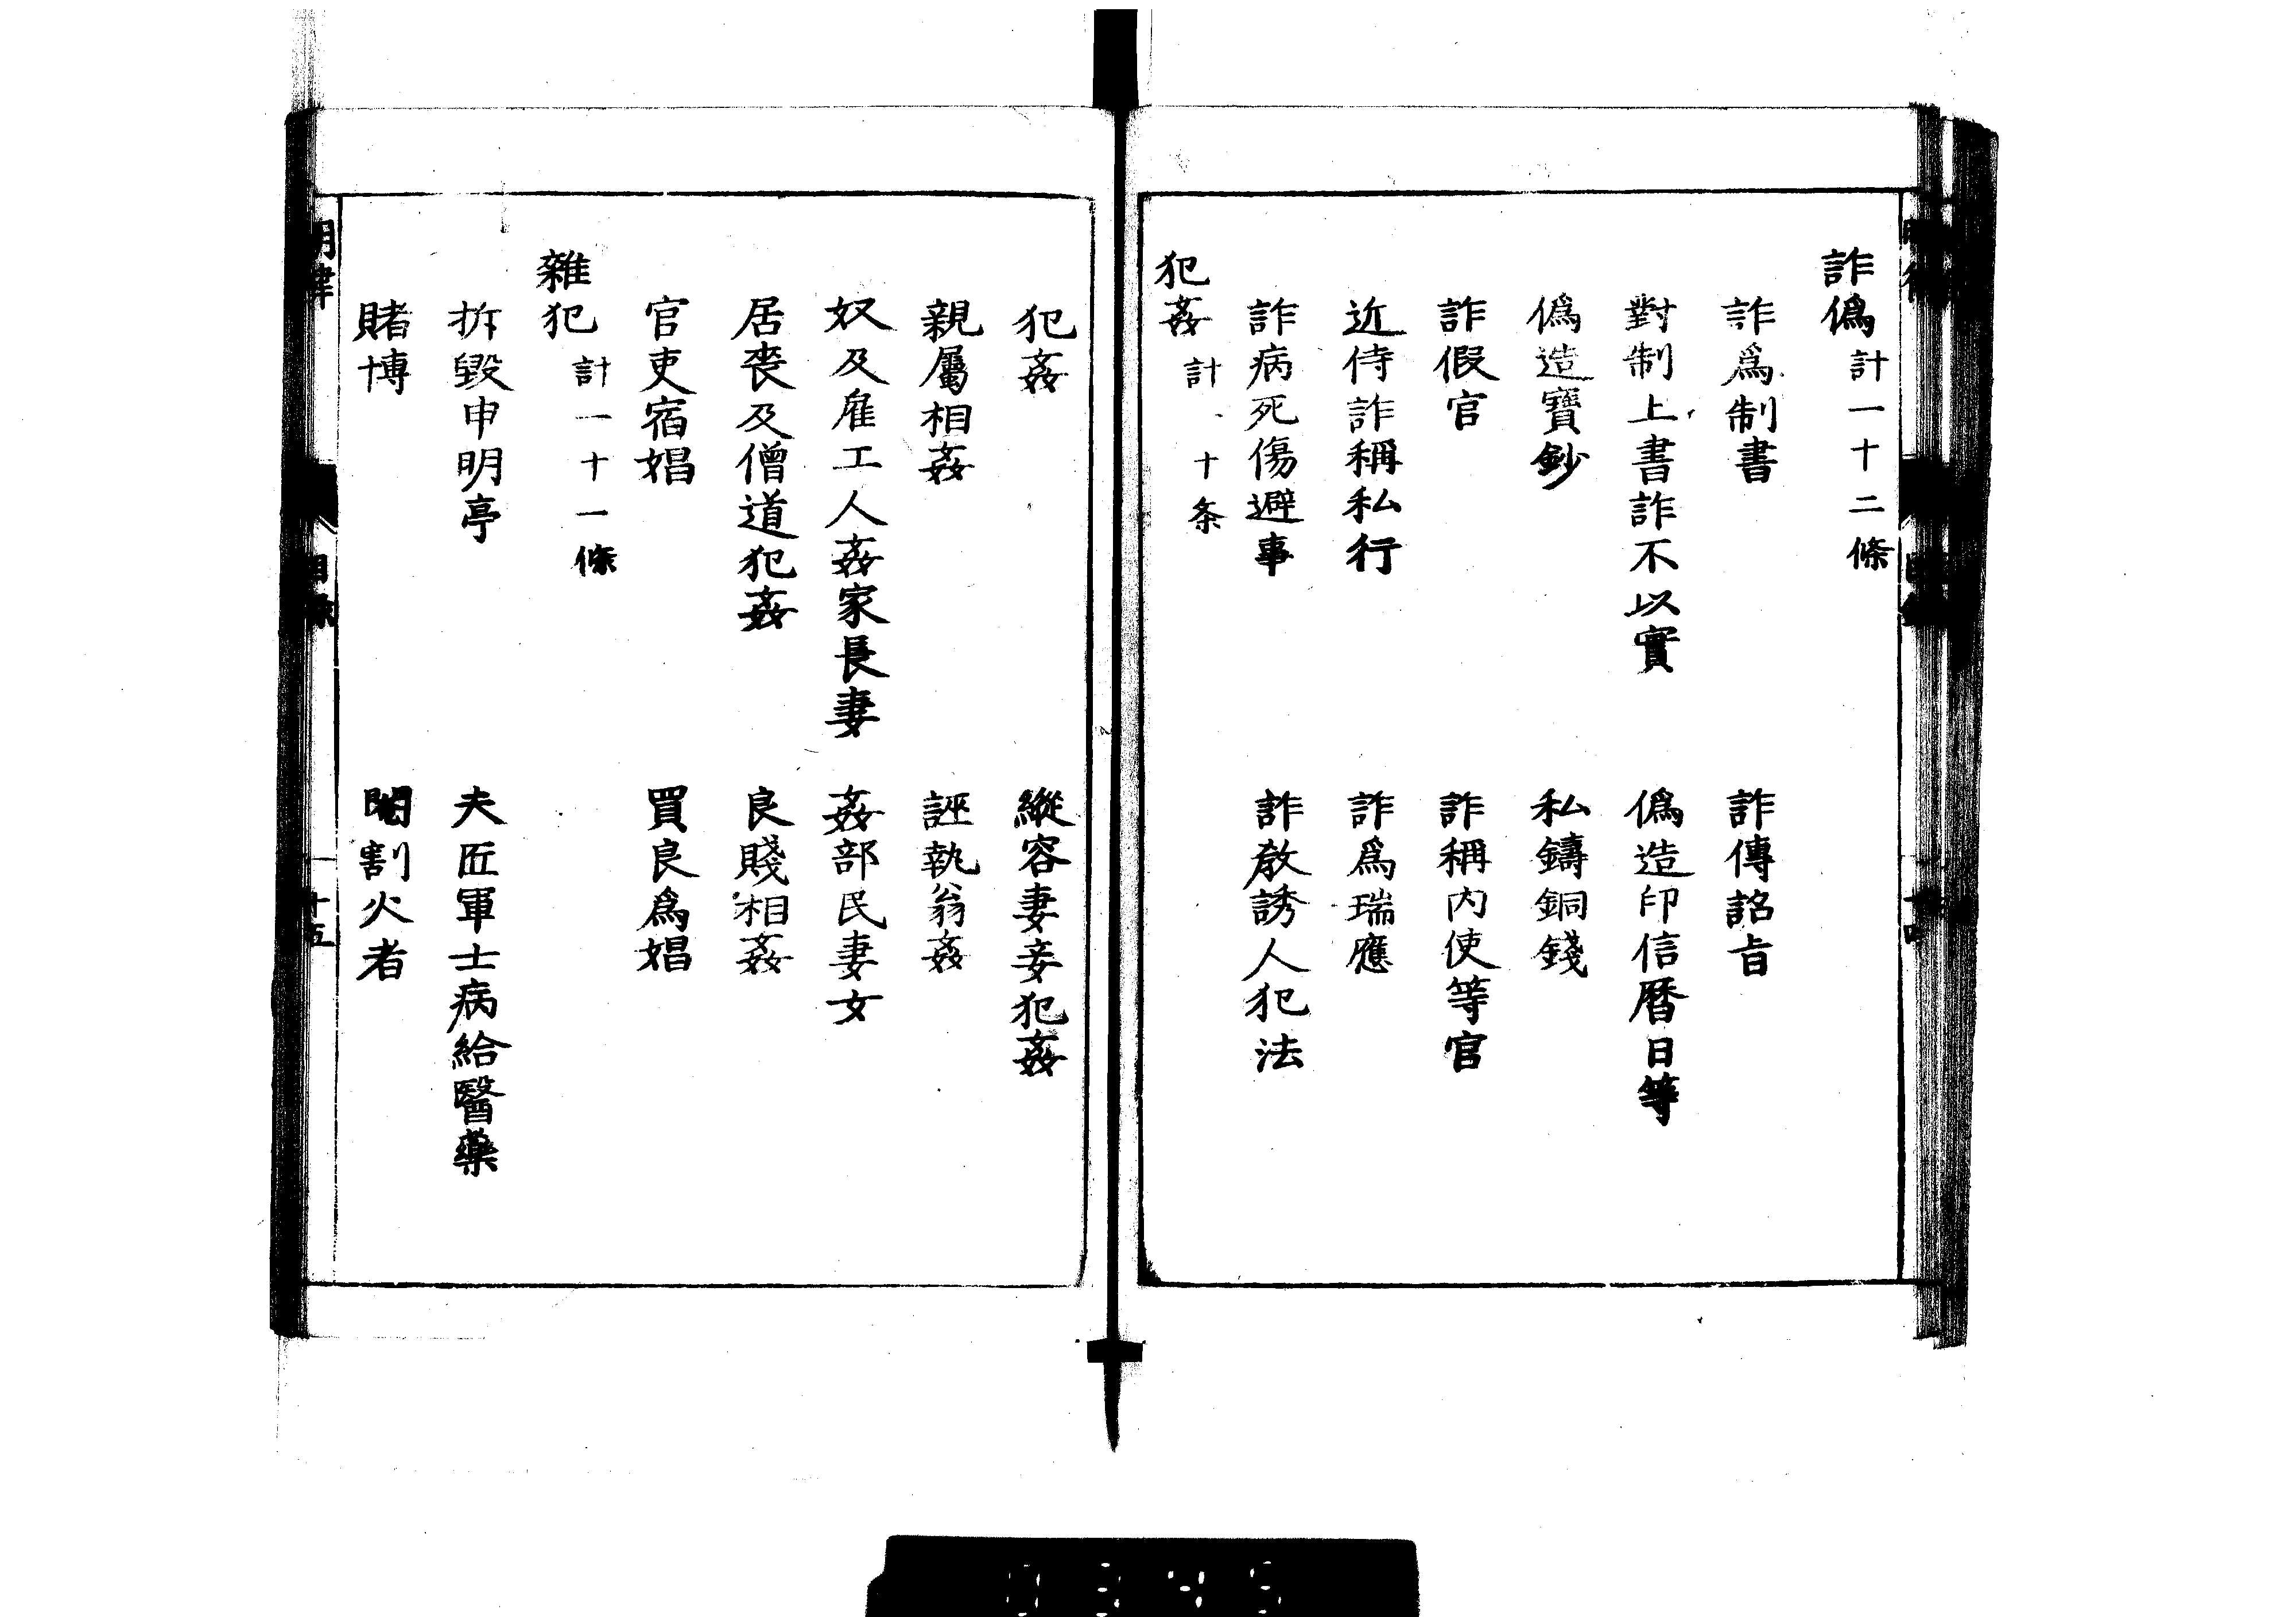 詐僞計一十二條
詐爲制書　詐傳詔旨
對制上書詐不以實　僞造印信曆日等
僞造寶鈔　私鑄銅錢
詐假官　詐稱內使等官
近侍詐稱私行　詐爲瑞應
詐病死傷避事　詐教誘人犯法
犯姦計十条
犯姦　縱容妻妾犯姦
親屬相姦　誣執翁姦
奴及雇工人姦家長妻　姦部民妻女
居喪及僧道犯姦　良賤相姦
官吏宿娼　買良爲娼
雜犯計一十一條
拆毀申明亭　夫匠軍士病給醫藥
賭博　閹割火者
明律　目錄　十五